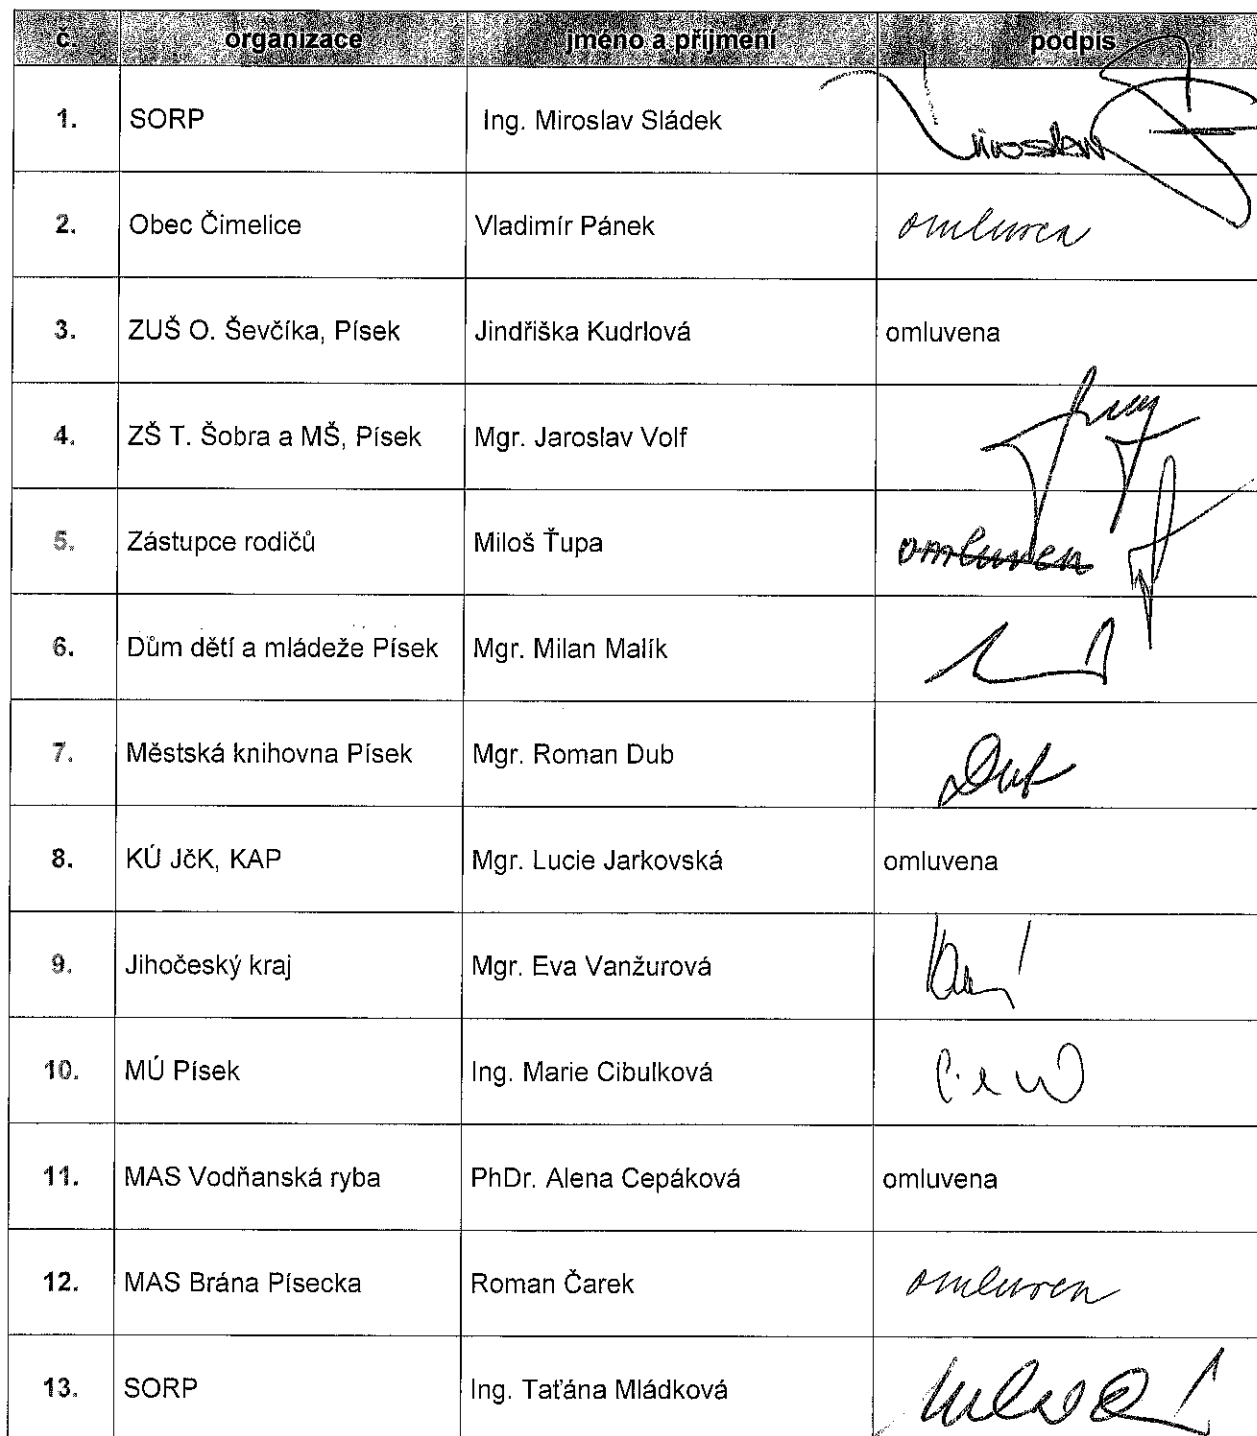 č. organizace jméno a příjmení podpis
1. SORP Ing. Miroslav Sládek Miroslav
2. Obec Čimelice Vladimír Pánek omluven
3. ZUŠ O. Ševčíka, Písek Jindřiška Kudrlová omluvena
4. ZŠ T. Šobra a MŠ, Písek Mgr. Jaroslav Volf
5. Zástupce rodičů Miloš Ťupa omluven
6. Dům dětí a mládeže Písek Mgr. Milan Malík
7. Městská knihovna Písek Mgr. Roman Dub Dub
8. KÚ JčK, KAP Mgr. Lucie Jarkovská omluvena
9. Jihočeský kraj Mgr. Eva Vanžurová
10. MÚ Písek Ing. Marie Cibulková
11. MAS Vodňanská ryba PhDr. Alena Cepáková omluvena
12. MAS Brána Písecka Roman Čarek omluven
13. SORP Ing. Taťána Mládková